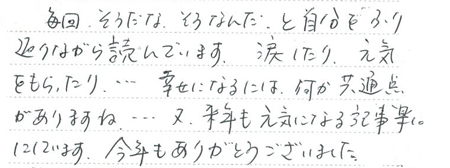 毎回、そうだな、そうなんだ、と自分をふり
返りながら読んでいます。涙したり、元気
をもらったり、… 幸せになるには、何か共通点
がありますね … 又、来年も元気になる記事楽し
にしています。今年もありがとうございました。